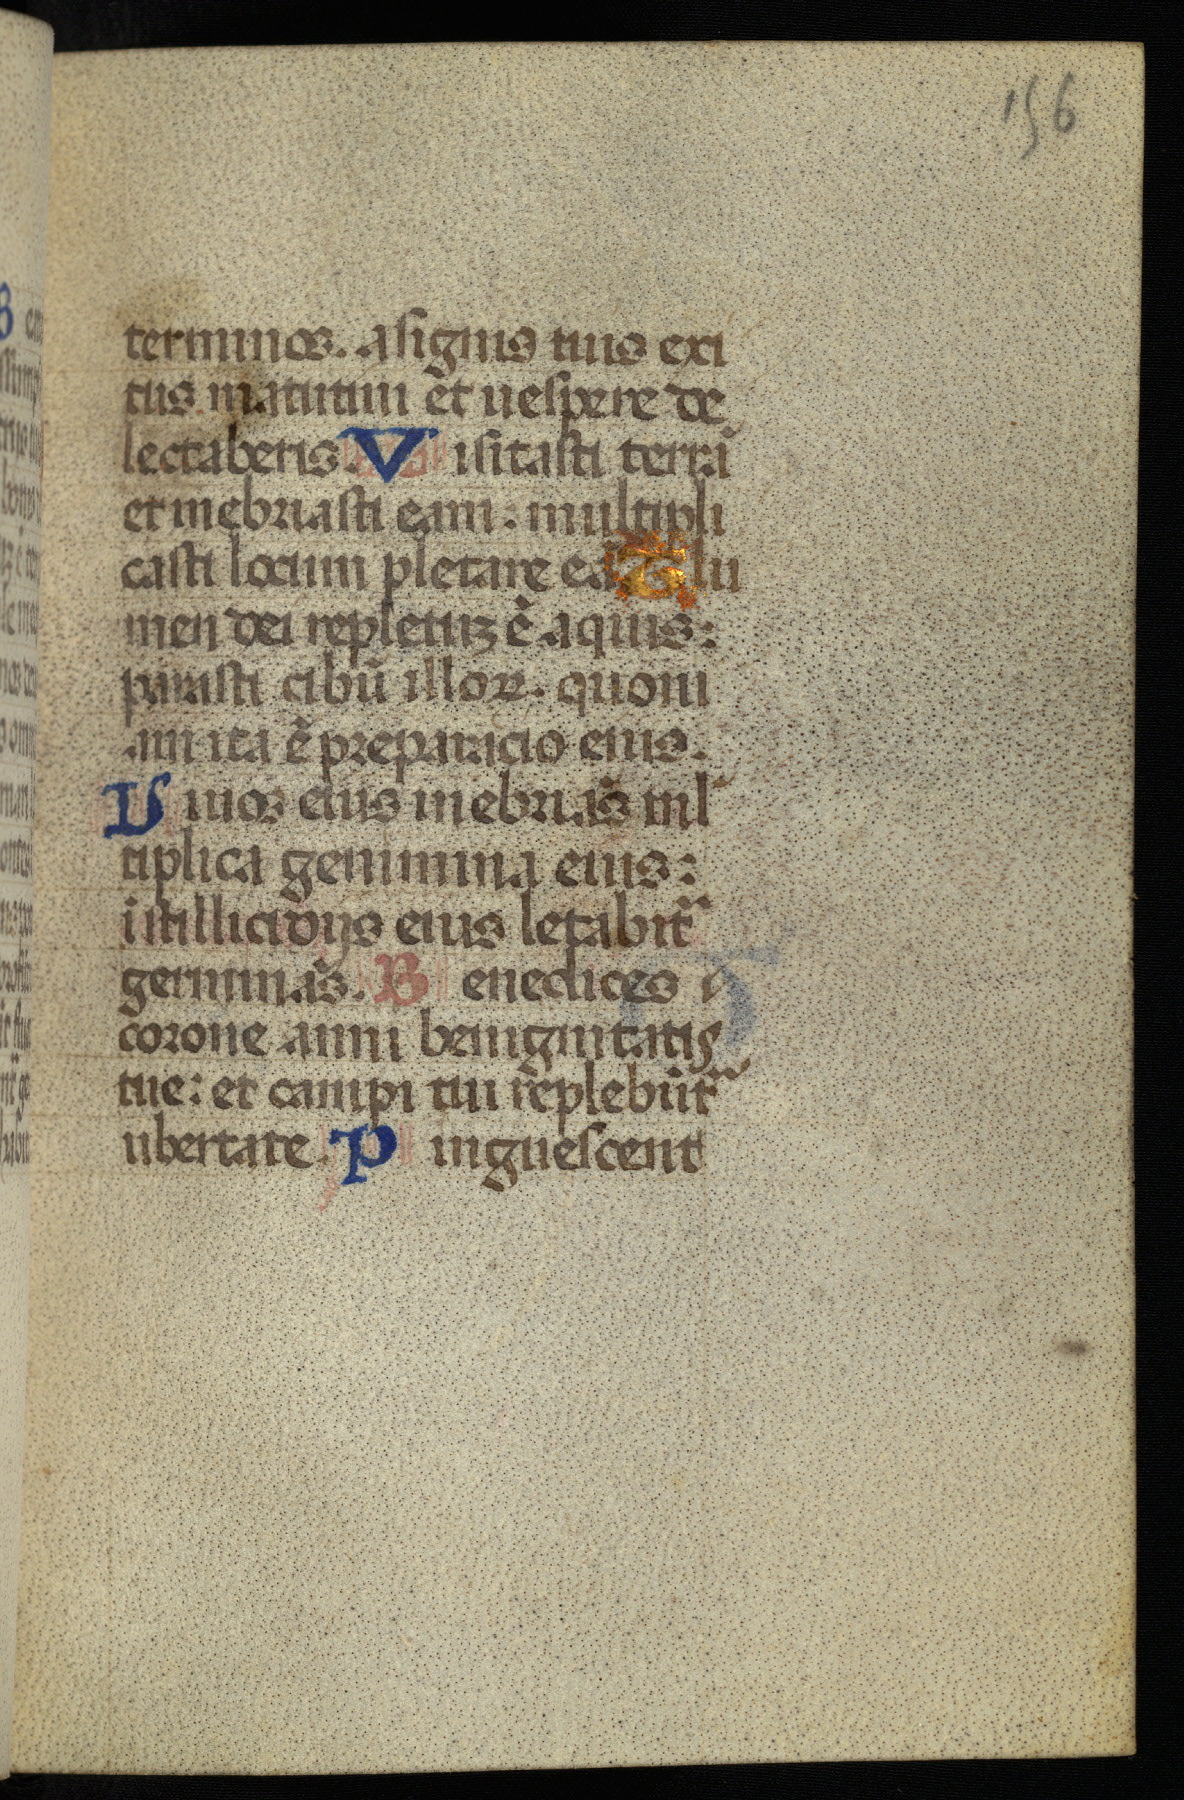 156
terminos. a signis tuis exi
tus matutini et uespere de
lectaberis. Visitasti terrā
et inebriasti eam: multipli
casti locum pletare eā Flu
men dei repletuȝ ē aquis:
parasti cibū illoꝝ. quoni
am ita ē preparacio eius.
Riuos eius inebriās mul
tiplica genimina eius:
ī stillicidijs eius letabit᷑
germinās. Benedices
corone anni benignitatis
tue: et campi tui replebūt᷑
ubertate. Pinguescent